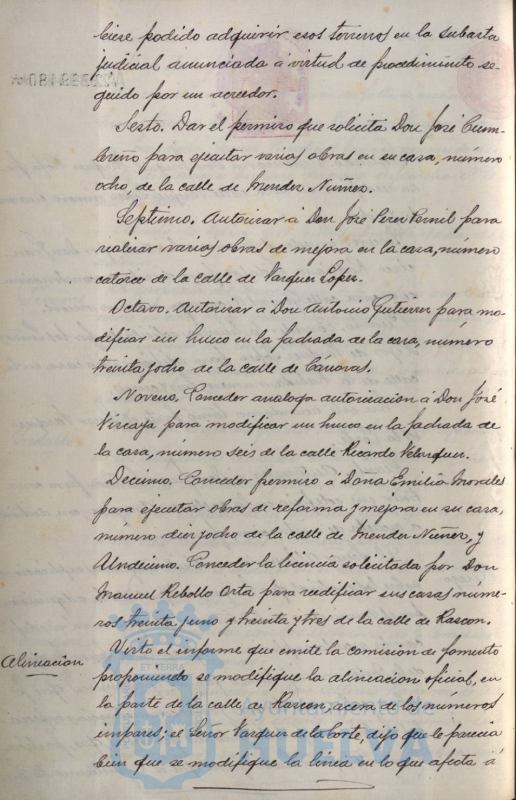 biese podido adquirir esos terrenos en la subasta
judicial anunciada á virtud de procedimiento se-
guido por un acreedor.
Sexto. Dar el permiso que solicita Don José Cum-
breño para ejecutar varias obras en su casa, número
ocho, de la calle de Mendez Nuñez.
Septimo. Autorizar á Don José Perez Pernil para
realizar varias obras de mejora en la casa, número
catorce de la calle de Vazquez Lopez.
Octavo. Autorizar á Don Antonio Gutierrez para mo-
dificar un hueco en la fachada de la casa, número
treinta y ocho de la calle de Cánovas.
Noveno. Conceder analoga autorizacion á Don José
Vizcaya para modificar un hueco en la fachada de
la casa, número seis de la calle Ricardo Velazquez.
Decimo. Conceder permiso á Doña Emilia Morales
para ejecutar obras de reforma y mejora en su casa,
número diez y ocho de la calle de Mendez Nuñez, y
Undecimo. Conceder la licencia solicitada por Don
Manuel Rebollo Orta para reedificar sus casas núme-
ros treinta y uno y treinta y tres de la calle de Rascon.
Alineacion
Visto el informe que emite la comision de fomento
proponiendo se modifique la alineacion oficial, en
la parte de la calle de Rascon, acera de los números
impares; el Señor Vazquez de la Corte, dijo que le parecia
bien que se modifique la linea en lo que afecta á
ET TERRÆ
Ayuntamiento de
HUELVA